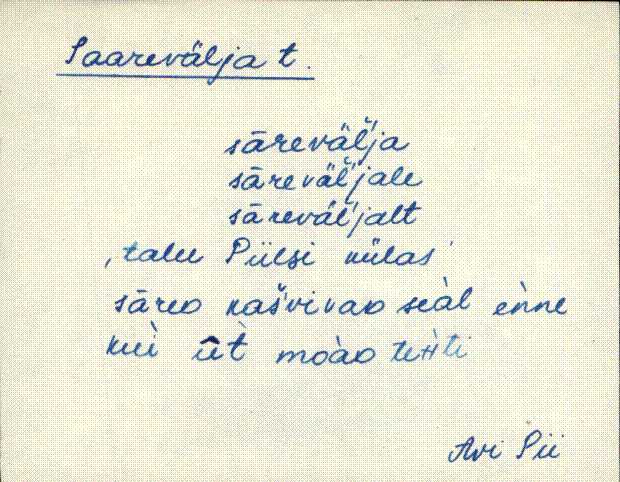 Saarevälja t.
sārevä̆l'ja
sārevä̆l'jale
sārevä̆l'jalt
'talu Piilsi külas'
sāreᴅ kašvivaᴅ seàl èǹne
kuì ū̀t̀ moàᴅ teh̀ti
Avi Pii